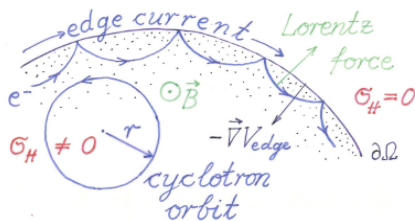 edge current
Lorentz
force
e⁻
⊙B⃗
σ_H = 0
σ_H ≠ 0
r
-∇⃗V_edge
∂Ω
cyclotron
orbit